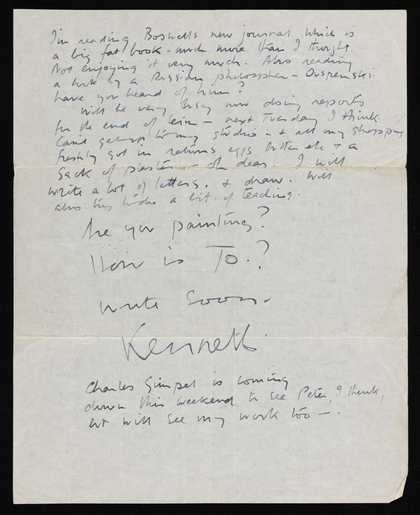 I'm reading Boswells new journal which is
a big fat book - much more than I thought.
Not enjoying it very much. Also reading
a book by a Russian philosopher - Ouspenski
have you heard of him?
Will be very busy now doing reports
for the end of term - next Tuesday I think
Can't get up to my studio - & all my shopping
freshly got in returns eggs butter etc & a
sack of plaster - oh dear. I will
write a lot of letters. & draw. Will
also this a bit of teaching.
Are you painting?
How is To.?
Write soon.
Kenneth.
Charles Gimpel is coming
down this weekend to see Peter, I think,
but will see my work too -.